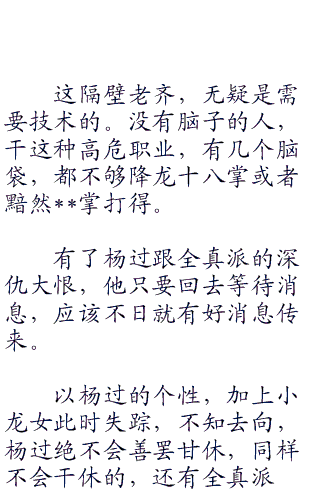 这隔壁老齐，无疑是需
要技术的。没有脑子的人，
干这种高危职业，有几个脑
袋，都不够降龙十八掌或者
黯然**掌打得。
有了杨过跟全真派的深
仇大恨，他只要回去等待消
息，应该不日就有好消息传
来。
以杨过的个性，加上小
龙女此时失踪，不知去向，
杨过绝不会善罢甘休，同样
不会干休的，还有全真派